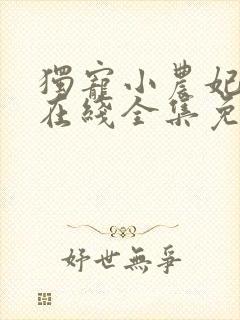 獨寵小農妃
在綫全集免
妤世無爭